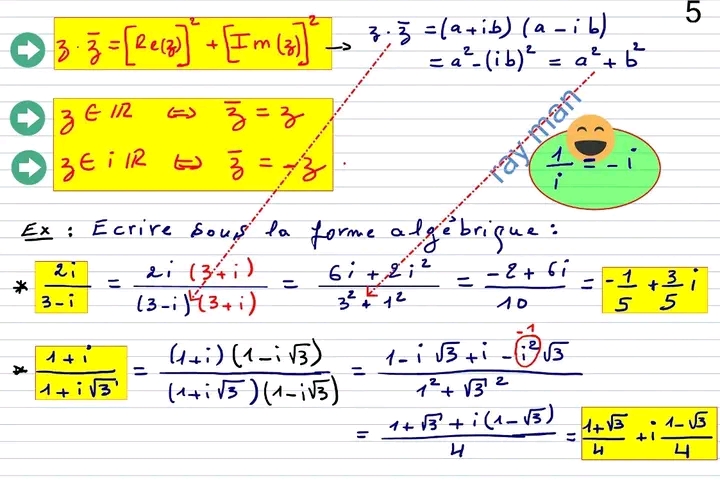 5
z · z̄ = [Re(z)]² + [Im(z)]² → z · z̄ = (a+ib)(a-ib)
= a² - (ib)² = a² + b²
z ∈ IR ⇔ z̄ = z
z ∈ i IR ⇔ z̄ = -z
1/i = -i
ray man
Ex : Ecrire sous la forme algébrique :
* 2i/(3-i) = 2i (3+i)/((3-i)(3+i)) = (6i + 2i²)/(3² + 1²) = (-2 + 6i)/10 = -1/5 + 3/5 i
* (1+i)/(1+i√3) = (1+i)(1-i√3)/((1+i√3)(1-i√3)) = (1-i√3+i-i²√3)/(1²+√3²)
-1
= (1+√3+i(1-√3))/4 = (1+√3)/4 + i (1-√3)/4